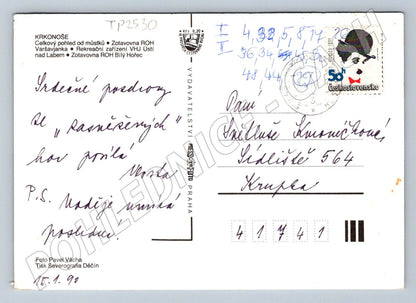 TP2530
KRKONOŠE
Celkový pohled od můstků • Zotavovna ROH
Varšavjanka • Rekreační zařízení VHJ Ústí
nad Labem • Zotavovna ROH Bílý Hořec
Srdečné pozdravy
ze "zasněžených"
hor posílá
Vlasta
P.S. Naděje umírá
poslední!
Foto Pavel Vácha
Tisk Severografia Děčín
15.1.90
VYDAVATELSTVÍ
PRAHA
I 4, 32, 5, 8, 14, 20
II 36, 34
48, 44
50 h
Československo
Paní
Květuše Šimoníčková
Sídliště 564
Krupka
4 1 7 4 1
POHLEDNICE - CZECH